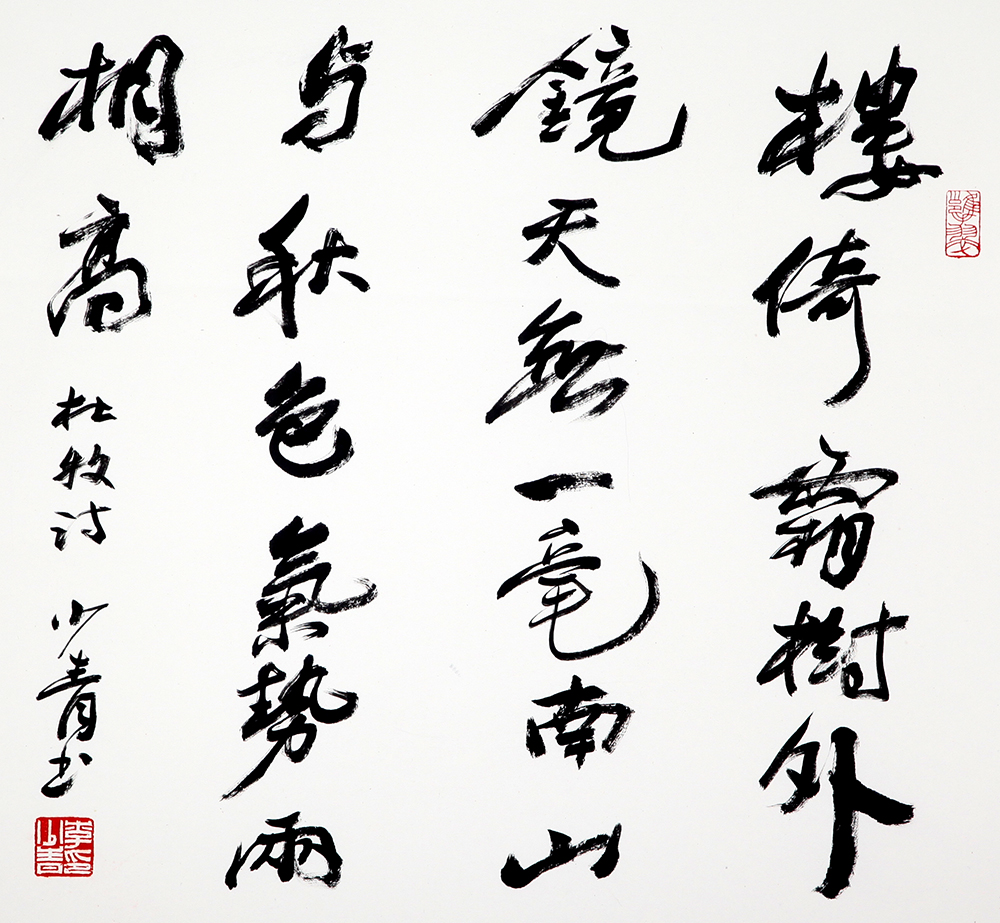 樓倚霜樹外
鏡天無一毫南山
与秋色氣勢兩
相高
杜牧詩 少青书
李少青印